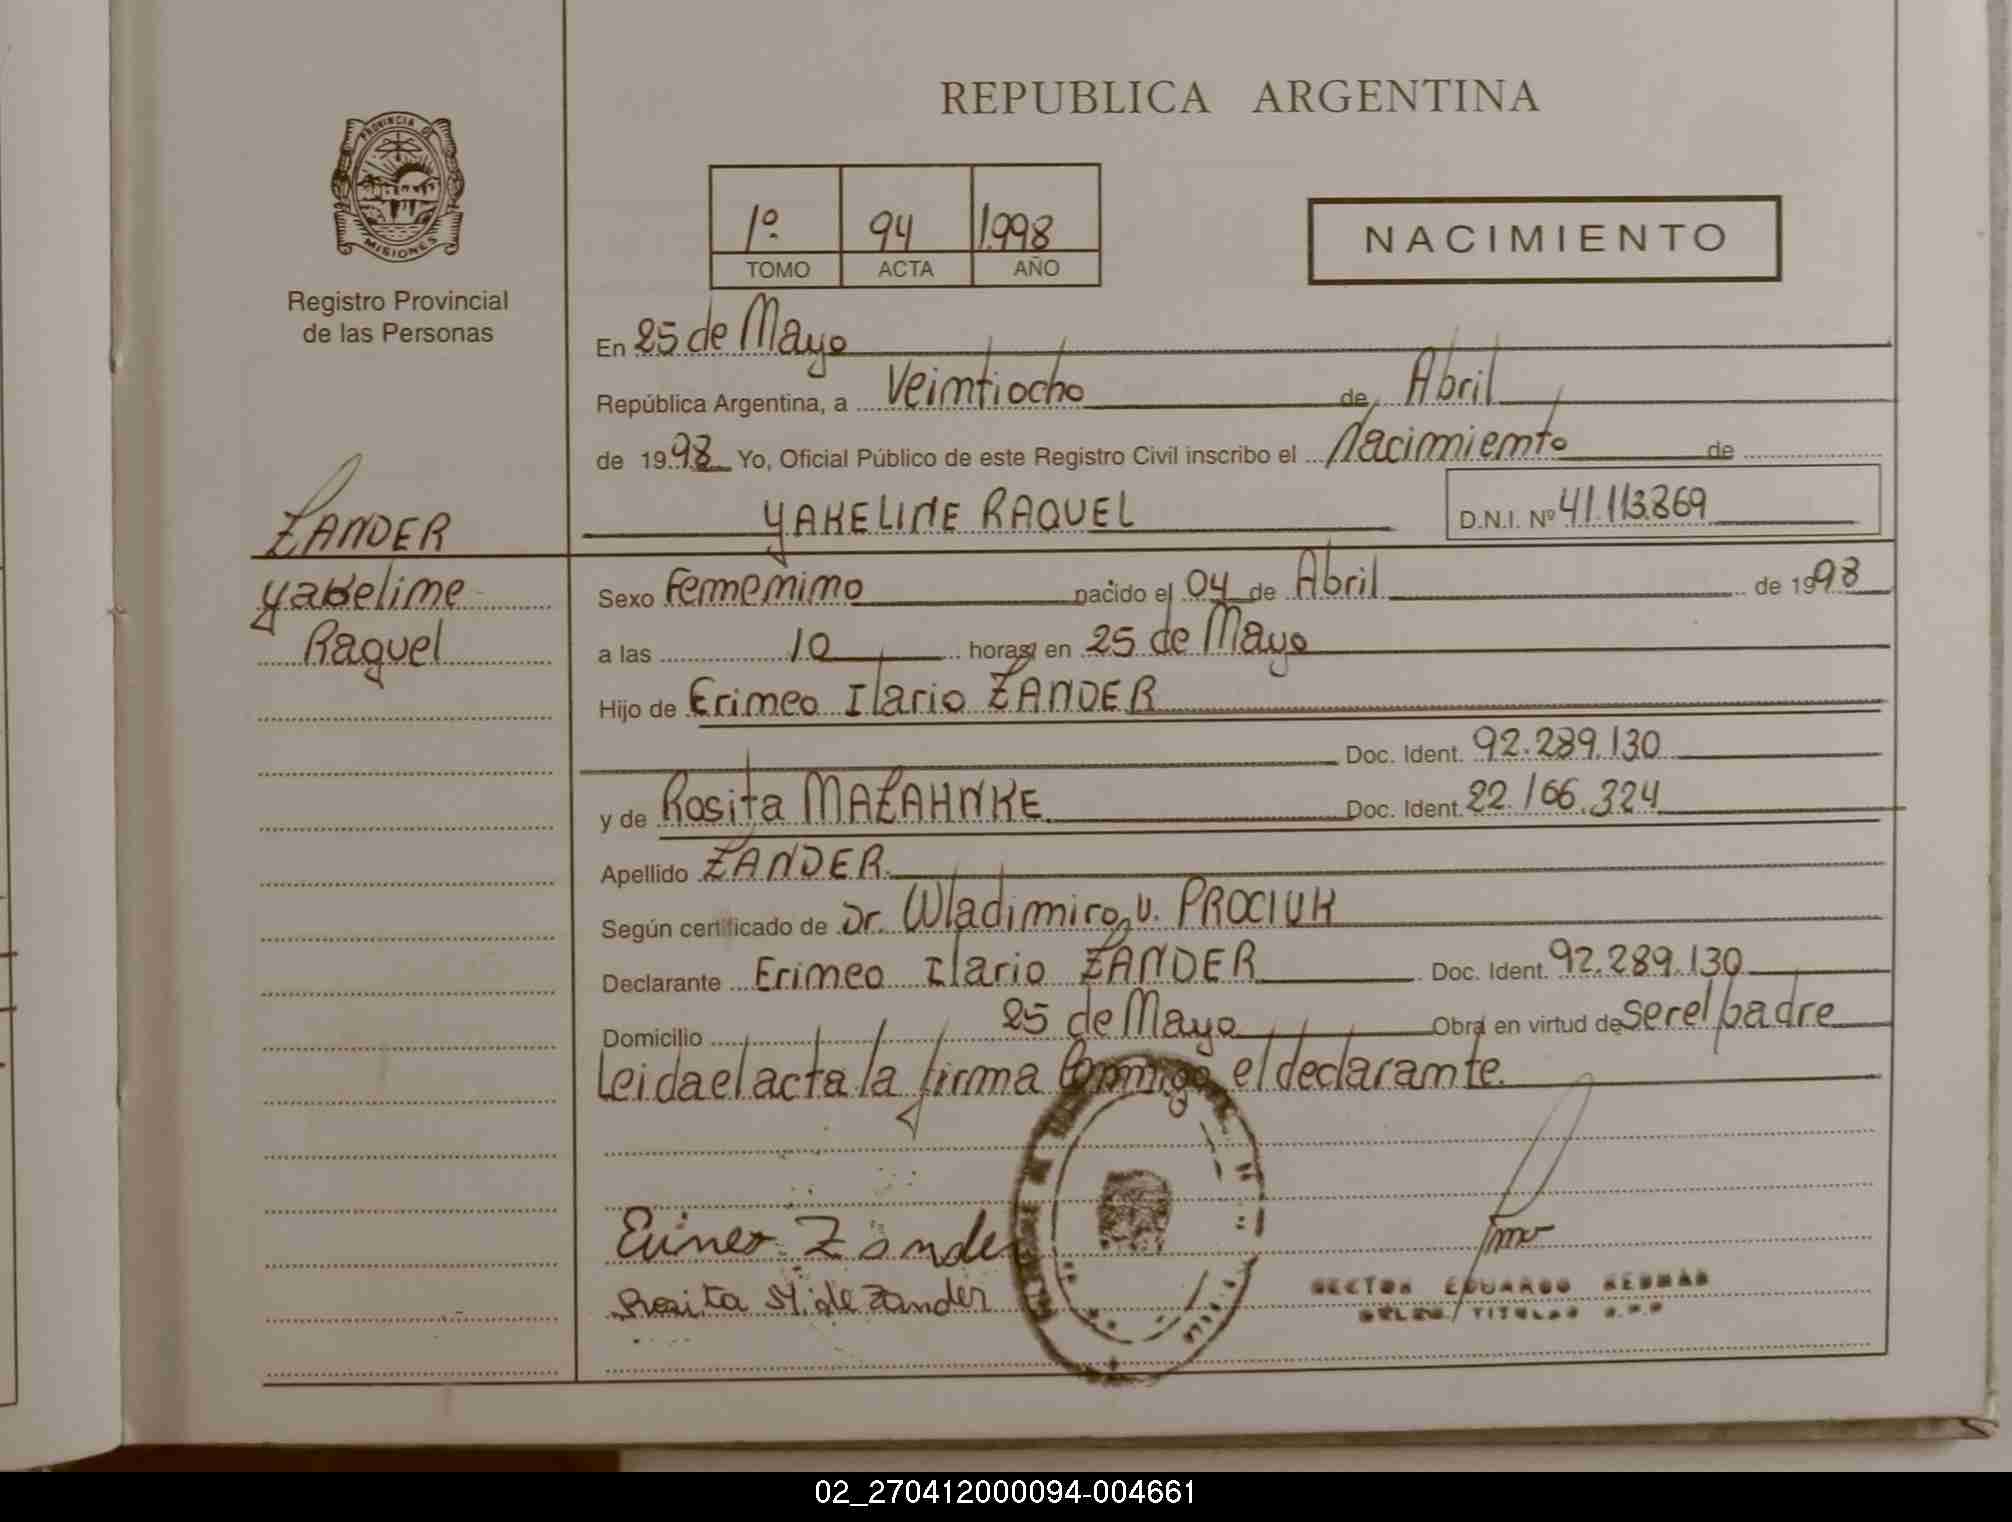 REPUBLICA ARGENTINA
PROVINCIA DE
MISIONES
Registro Provincial
de las Personas
1º 94 1998
TOMO ACTA AÑO
NACIMIENTO
En 25 de Mayo
República Argentina, a Veintiocho de Abril
de 1998 Yo, Oficial Público de este Registro Civil inscribo el Nacimiento de
YAKELINE RAQUEL D.N.I. Nº 41.113.869
ZANDER
Yakeline
Raquel
Sexo Femenino nacido el 04 de Abril de 1998
a las 10 horas, en 25 de Mayo
Hijo de Erineo Ilario ZANDER
Doc. Ident. 92.289.130
y de Rosita MAZAHNKE Doc. Ident. 22.166.324
Apellido ZANDER
Según certificado de Dr. Wladimiro V. PROCIUK
Declarante Erineo Ilario ZANDER Doc. Ident. 92.289.130
Domicilio 25 de Mayo Obra en virtud de ser el padre
Leida el acta la firma Conmigo el declarante.
Erineo Zander
Rosita M. de Zander
EDUARDO
TITULAR
02_270412000094-004661